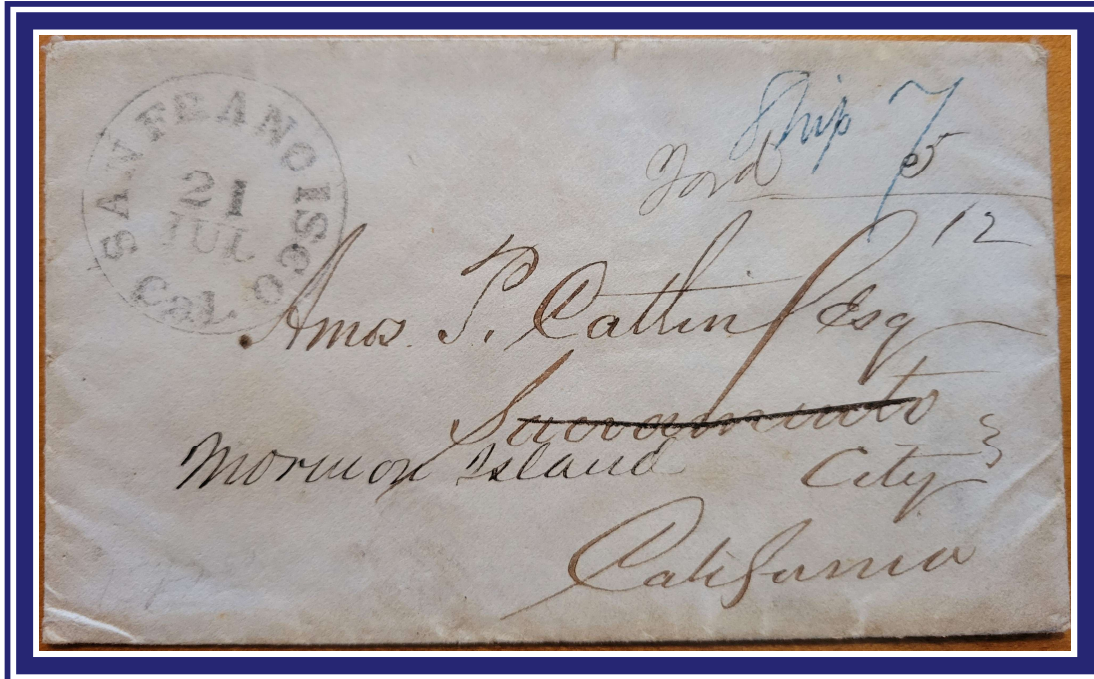 SAN FRANCISCO
21
JUL
Cal.
Ship 7
Ford 5
12
Amos P. Catlin Esq
Sacramento
Mormon Island City
California